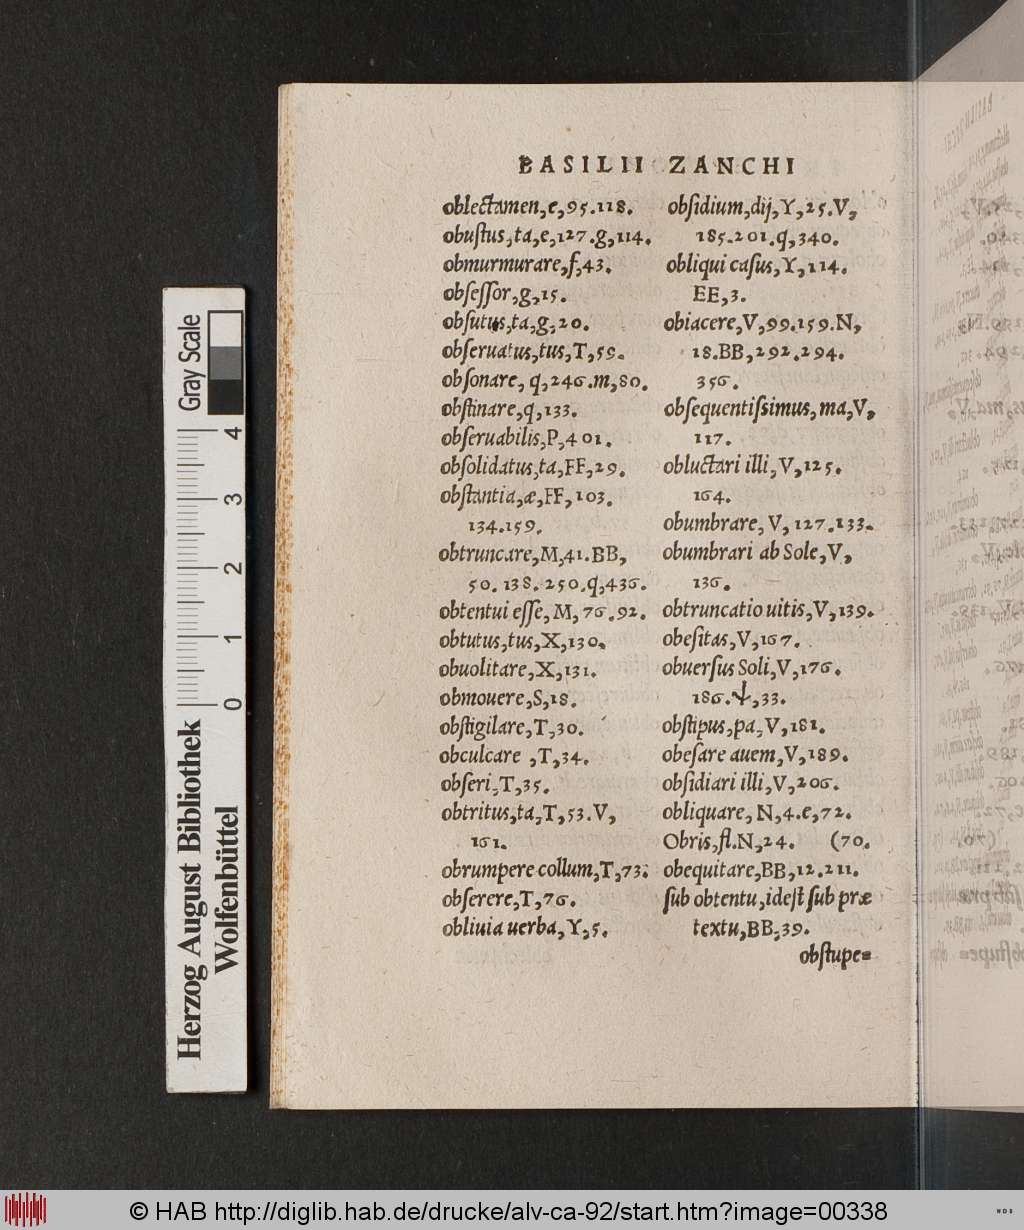 BASILII ZANCHI
oblectamen,e,95.118.
obustus,ta,e,127.g,114.
obmurmurare,f,43.
obsessor,g,15.
obsutus,ta,g,20.
obseruatus,tus,T,59.
obsonare, q,246.m,80.
obstinare,q,133.
obseruabilis,P,401.
obsolidatus,ta,FF,29.
obstantia,æ,FF,103.
134.159.
obtruncare,M,41.BB,
50.138.250.q,436.
obtentui esse, M, 76.92.
obtutus,tus,X,130.
obuolitare,X,131.
obmouere,S,18.
obstigilare,T,30.
obculcare ,T,34.
obseri,T,35.
obtritus,ta,T,53.V,
161.
obrumpere collum,T,73.
obserere,T,76.
obliuia uerba,Y,5.
obsidium,dij,Y,25.V,
185.201.q,340.
obliqui casus,Y,114.
EE,3.
obiacere,V,99.159.N,
18.BB,292.294.
356.
obsequentissimus, ma,V,
117.
obluctari illi,V,125.
164.
obumbrare, V, 127.133.
obumbrari ab Sole,V,
136.
obtruncatio uitis,V,139.
obesitas,V,167.
obuersus Soli,V,176.
186.ψ,33.
obstipus,pa,V,181.
obesare auem,V,189.
obsidiari illi,V,206.
obliquare, N,4.e,72.
Obris,fl.N,24. (70.
obequitare,BB,12.211.
sub obtentu,idest sub præ
textu,BB,39.
obstupe=
Gray Scale
4
3
2
1
0
Herzog August Bibliothek
Wolfenbüttel
diglib
© HAB http://diglib.hab.de/drucke/alv-ca-92/start.htm?image=00338
WDB